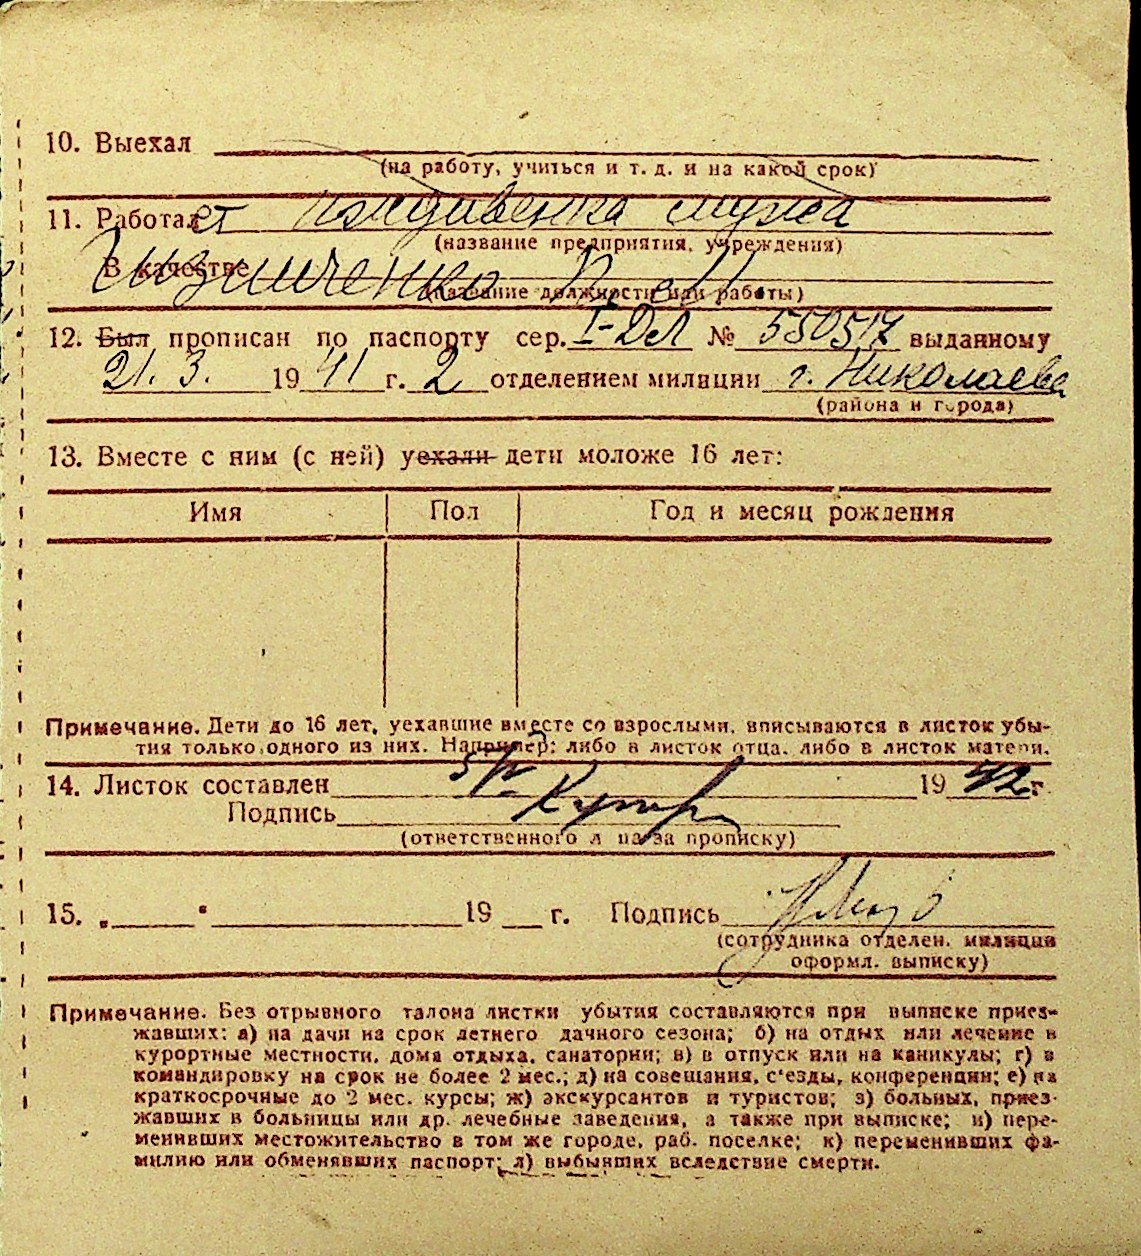 10. Выехал
(на работу, учиться и т. д. и на какой срок)
11. Работает иждивенка мужа
(название предприятия, учреждения)
В качестве
(название должности или работы)
12. Был прописан по паспорту сер. I-ДЛ № 550517 выданному
21. 3. 1941 г. 2 отделением милиции г. Николаева
(района и города)
13. Вместе с ним (с ней) уехали дети моложе 16 лет:
Имя Пол Год и месяц рождения
Примечание. Дети до 16 лет, уехавшие вместе со взрослыми, вписываются в листок убы-
тия только одного из них. Например: либо в листок отца, либо в листок матери.
14. Листок составлен 1942 г.
Подпись
(ответственного лица за прописку)
15. „ " 19 г. Подпись
(сотрудника отделен. милиции
оформл. выписку)
Примечание. Без отрывного талона листки убытия составляются при выписке приез-
жавших: а) на дачи на срок летнего дачного сезона; б) на отдых или лечение в
курортные местности, дома отдыха, санатории; в) в отпуск или на каникулы; г) в
командировку на срок не более 2 мес.; д) на совещания, с'езды, конференции; е) на
краткосрочные до 2 мес. курсы; ж) экскурсантов и туристов; з) больных, приез-
жавших в больницы или др. лечебные заведения, а также при выписке; и) пере-
менивших местожительство в том же городе, раб. поселке; к) переменивших фа-
милию или обменявших паспорт; л) выбывших вследствие смерти.